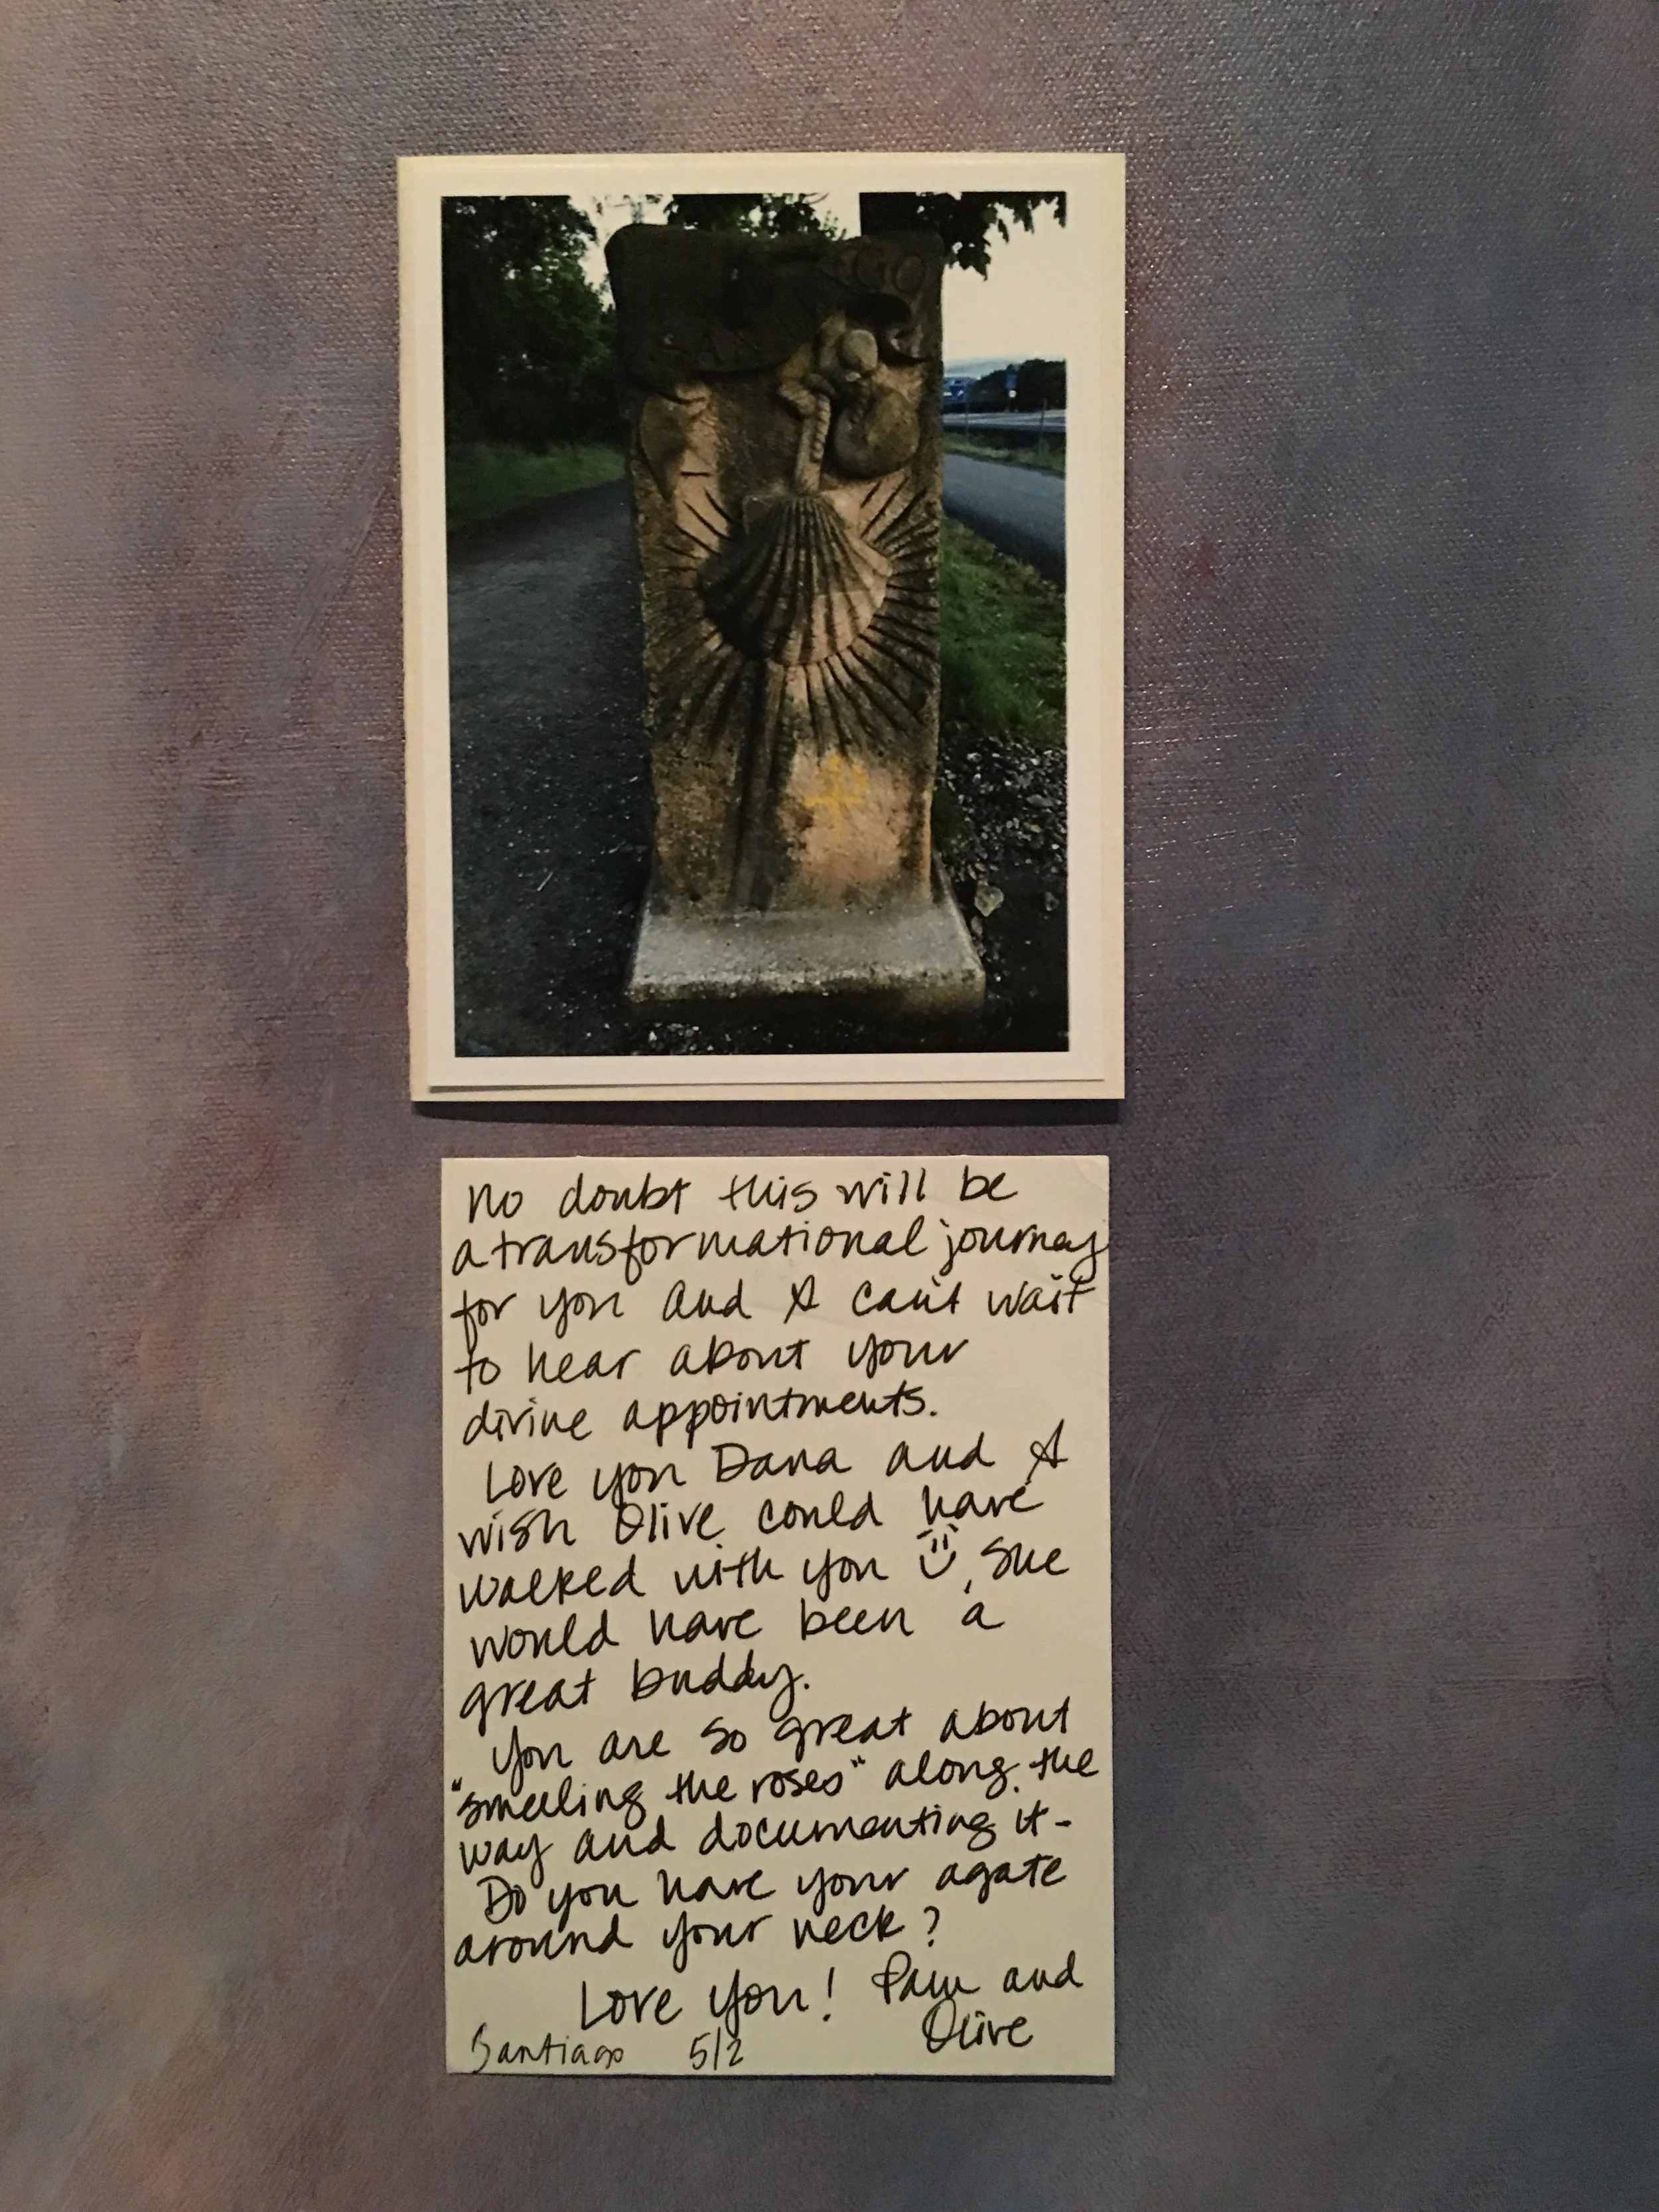 GO
No doubt this will be
a transformational journey
for you and I can't wait
to hear about your
divine appointments.
Love you Dana and I
wish Olive could have
walked with you ü, she
would have been a
great buddy.
You are so great about
"smelling the roses" along the
way and documenting it-
Do you have your agate
around your neck?
Love you! Pam and
Olive
Santiago 5/2